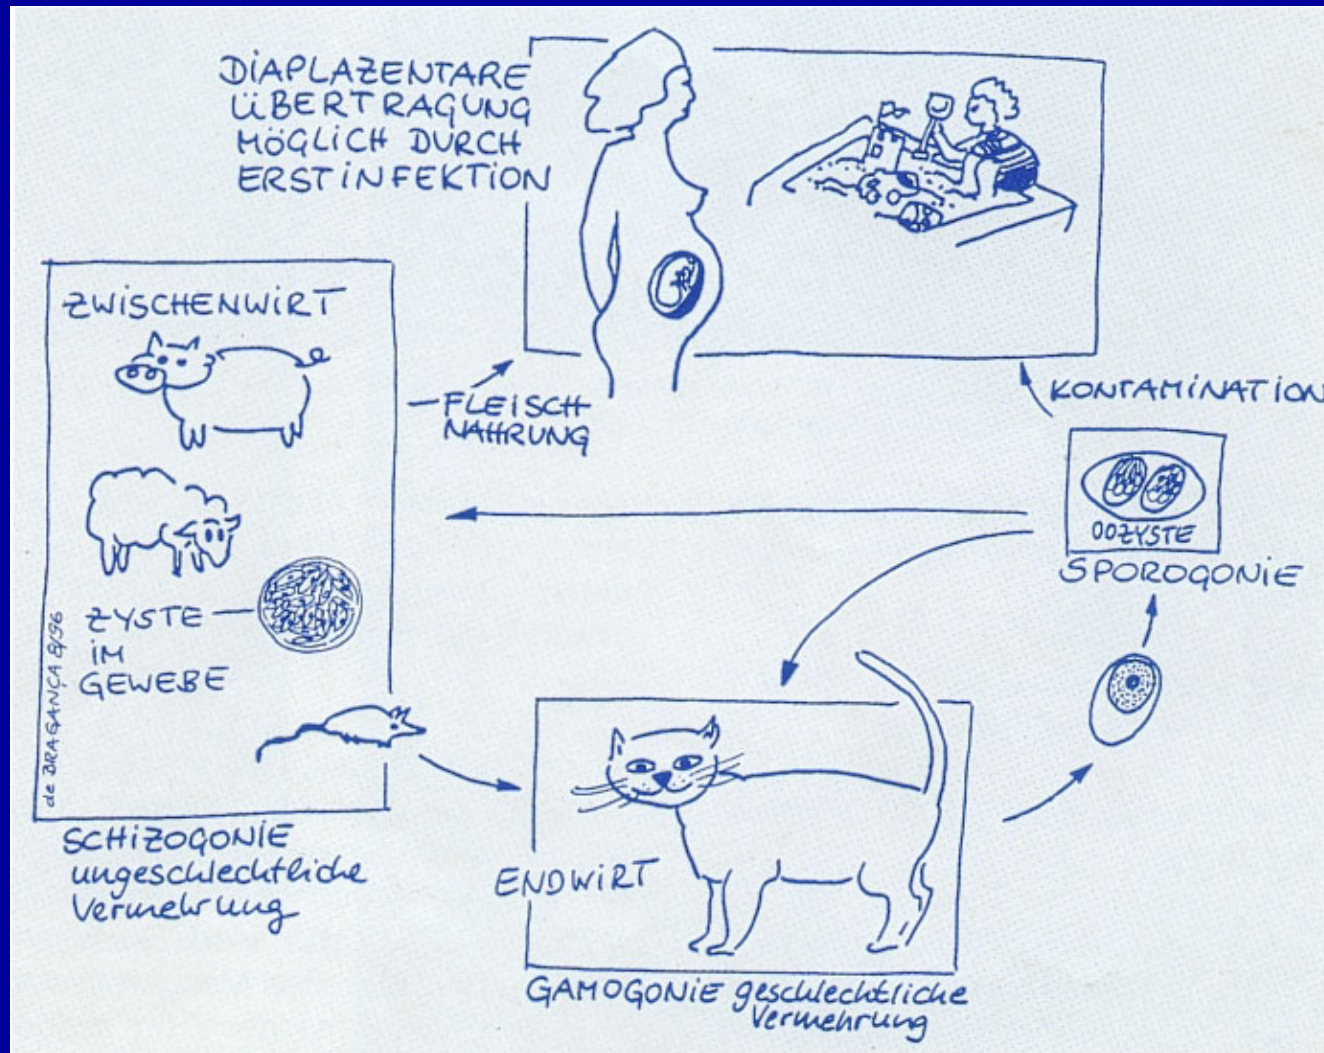 DIAPLAZENTARE
ÜBERTRAGUNG
MÖGLICH DURCH
ERSTINFEKTION
ZWISCHENWIRT
FLEISCH-
NAHRUNG
KONTAMINATION
OOZYSTE
SPOROGONIE
ZYSTE
IM
GEWEBE
de BRAGANÇA 8/96
SCHIZOGONIE
ungeschlechtliche
Vermehrung
ENDWIRT
GAMOGONIE geschlechtliche
Vermehrung